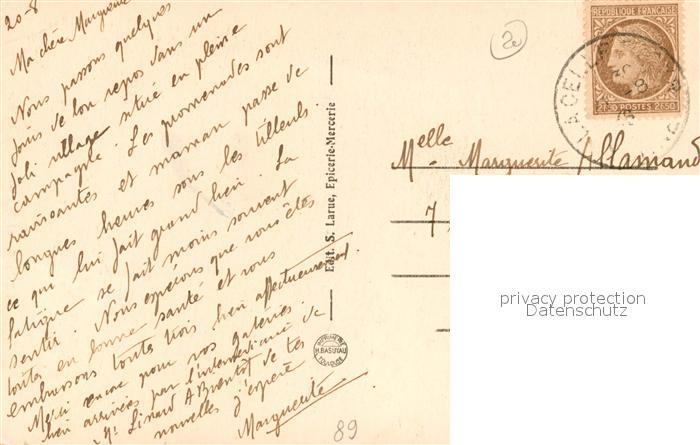 20-8
Ma chère Marguerite
Nous passons quelques
jours de bon repos dans un
joli village situé en pleine
campagne. Les promenades sont
ravissantes et maman passe de
longues heures sous les tilleuls.
ce qui lui fait grand bien. La
fatigue se fait moins souvent
sentir. Nous espérons que vous êtes
toutes en bonne santé et vous
embrassons toutes trois bien affectueusement.
Merci encore pour vos gateries
bien arrivées par l'intermédiaire de
Mr Linard A Bientôt de tes
nouvelles j'espère
Marguerite
Edit. S. Larue, Epicerie-Mercerie
IMPRIMERIE
H. BASUYAU
TOULOUSE
2e
REPUBLIQUE FRANÇAISE
2F50 POSTES 2F50
LA CELLE
Melle Marguerite Allamand
7
privacy protection
Datenschutz
89